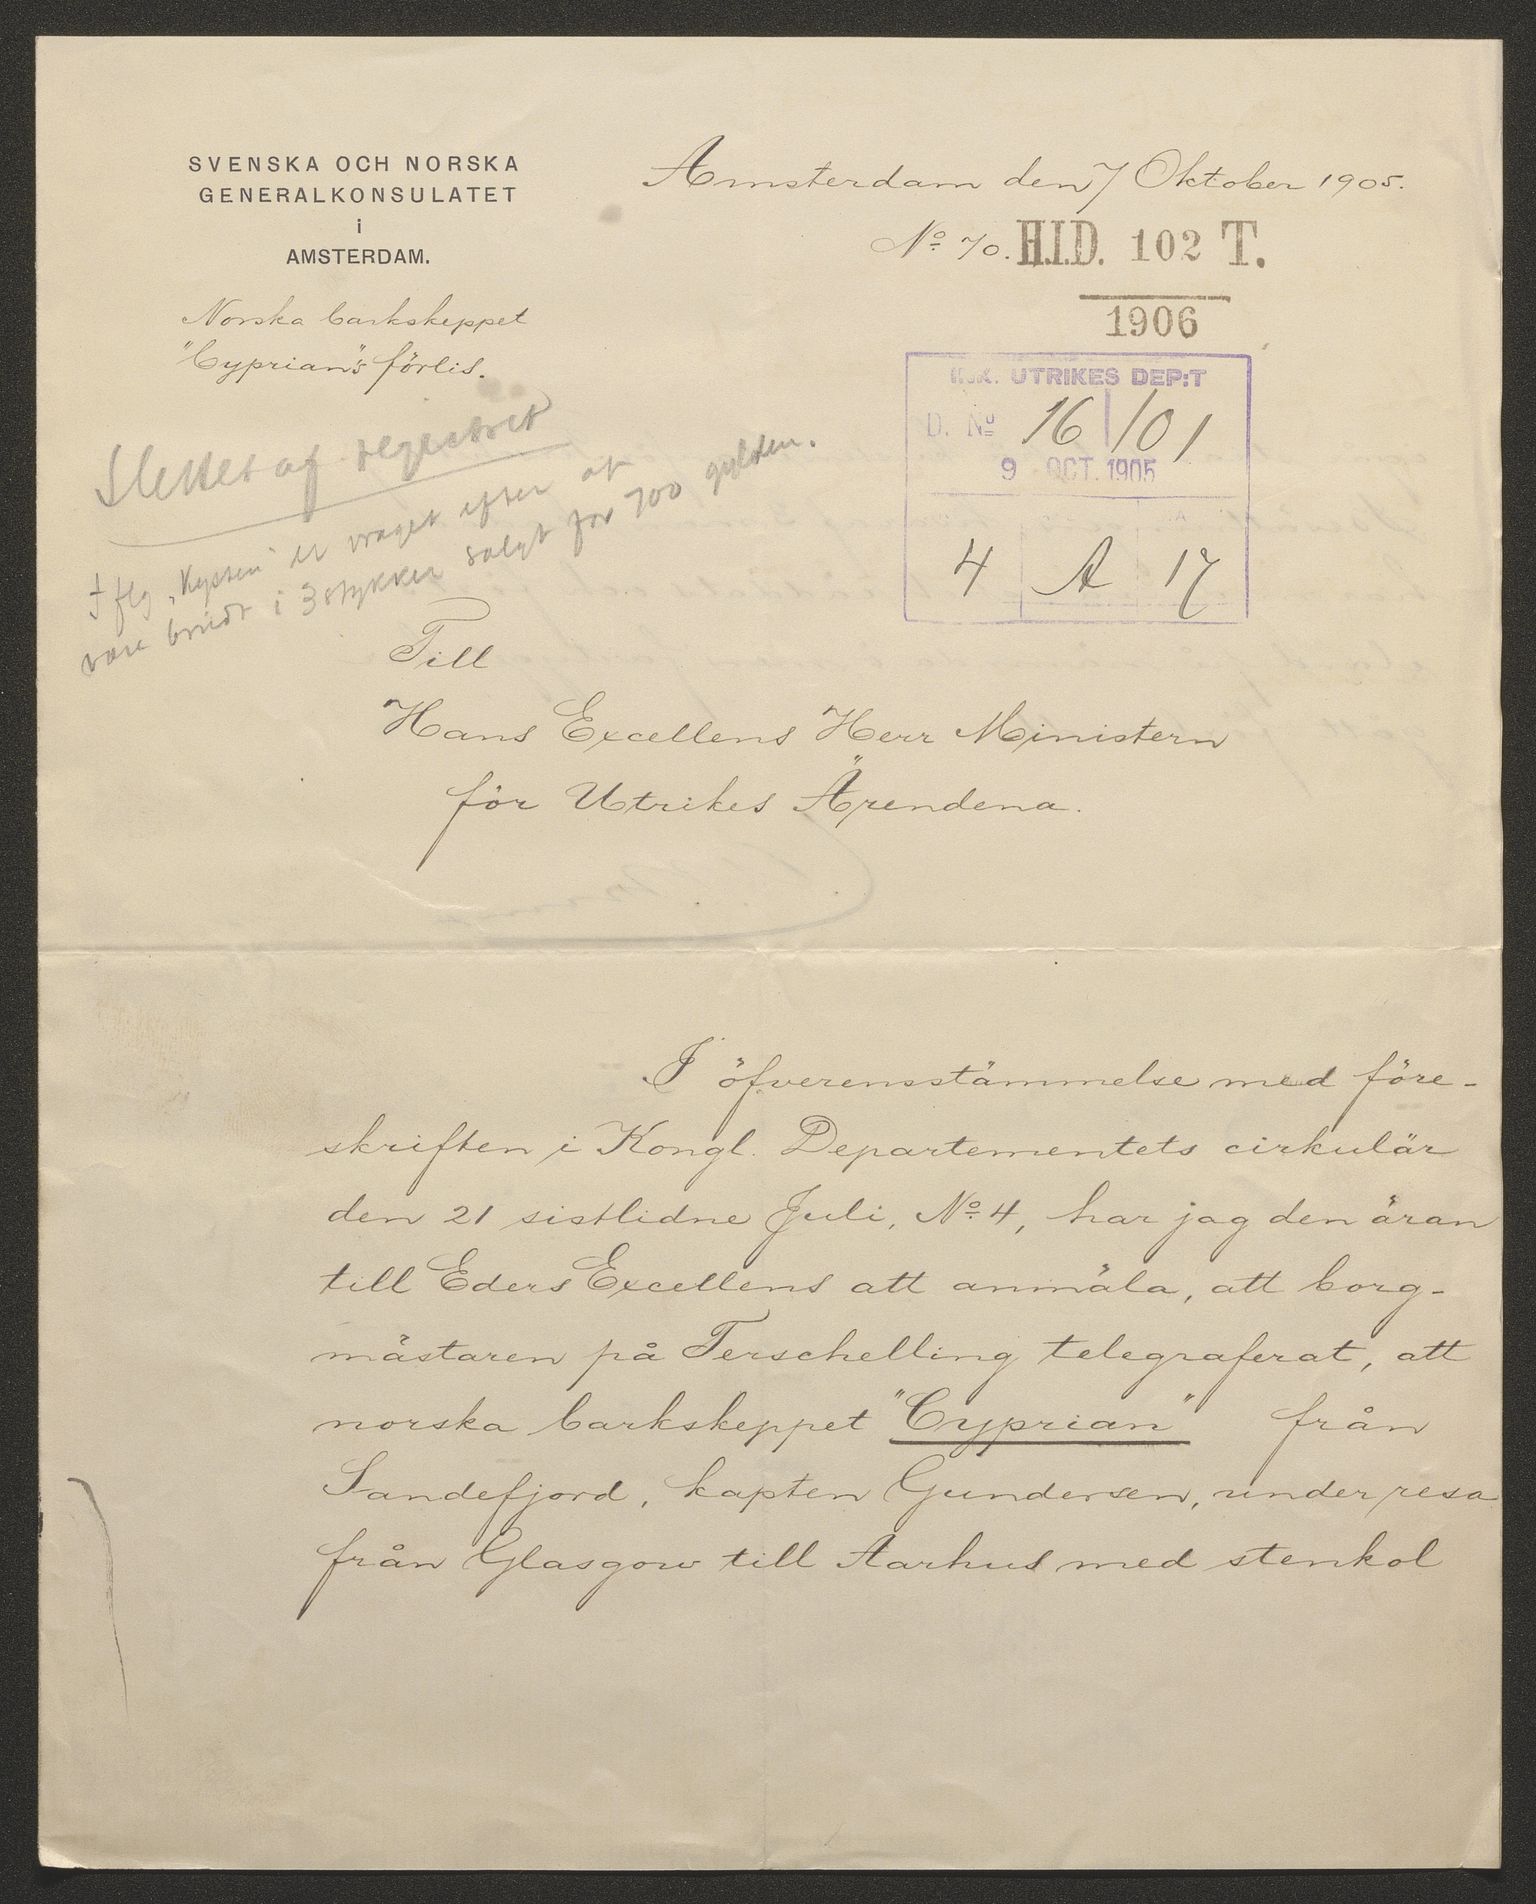 SVENSKA OCH NORSKA
GENERALKONSULATET
i
AMSTERDAM.
Amsterdam den 7 Oktober 1905.
No 70. H.I.D. 102 T.
1906
Norska barkskeppet
"Cyprian"s förlis.
UTRIKES DEP:T
D. No 16/101
9 OCT. 1905
4 A 17
Slettet af registret
Iflg „Kysten" er vraget efter at
være brudt i 3 stykker solgt for 700 gylden.
Till
Hans Excellens Herr Ministern
för Utrikes Ärendena.
I öfverensstämmelse med före-
skriften i Kongl. Departementets cirkulär
den 21 sistlidne Juli, No 4, har jag den äran
till Eders Excellens att anmäla, att borg-
mästaren på Terschelling telegraferat, att
norska barkskeppet "Cyprian" från
Sandefjord, kapten Gundersen, under resa
från Glasgow till Aarhus med stenkol